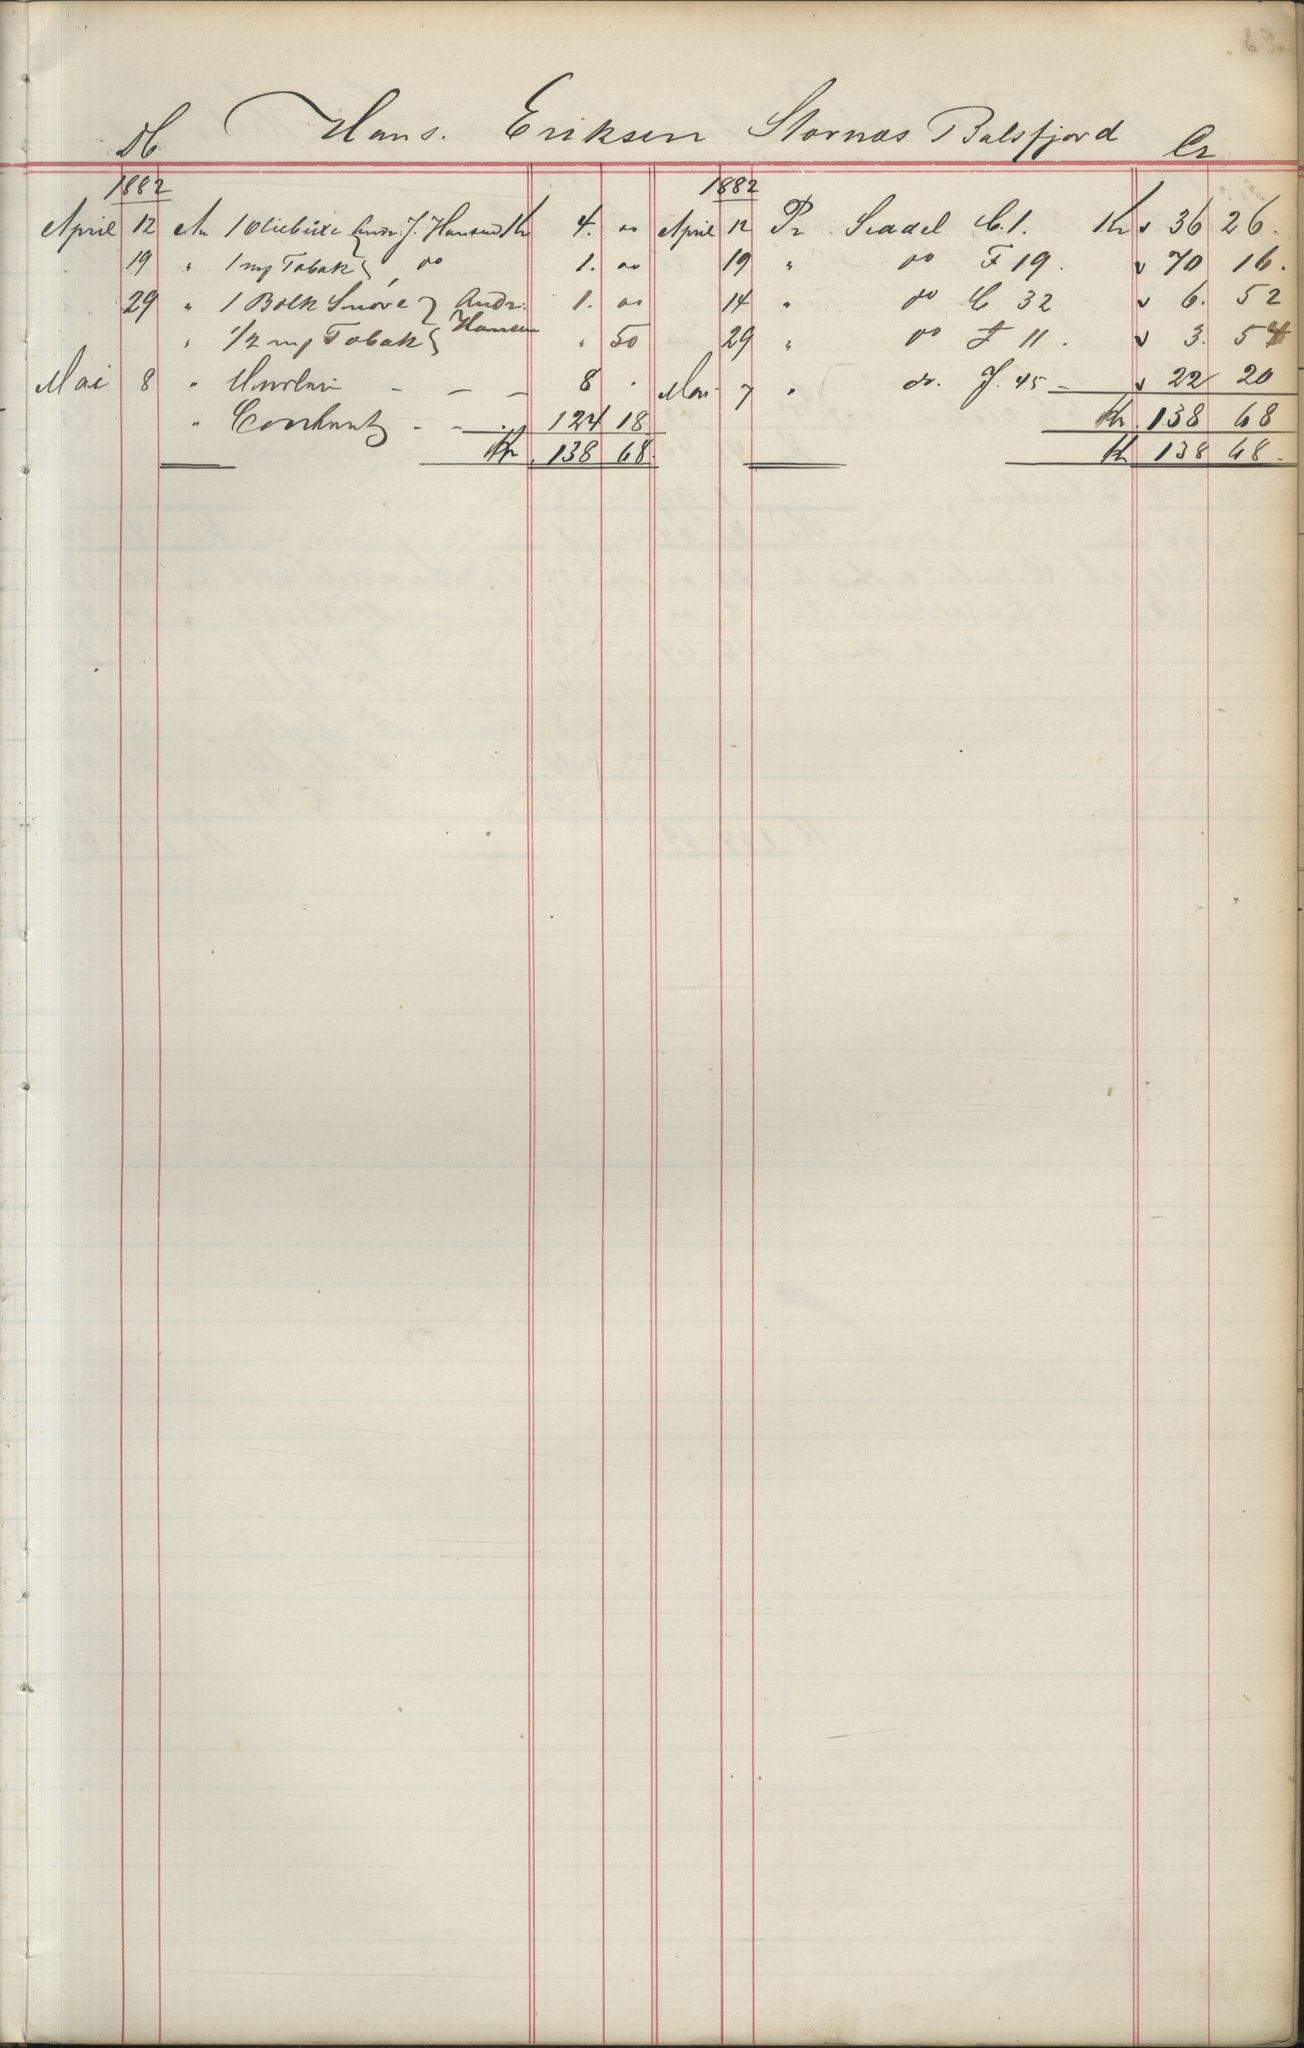 Db Hans. Eriksen Stornæs Balsfjord Cr
1882
April 12 An 1 Oliebüxe Andr. J. Hansen Kr 4. "
19 " 1 mg Tobak do 1. "
29 " 1 Bolk Snöre Andr. Hansen 1. "
" 1/2 mg Tobak " 50
Mai 8 " - - - 8 "
" Contant - - 124 18
Kr. 138 68
1882
April 12 Pr Seddel C. 1. Kr 36 26.
19 " do F 19. 70 16.
14 " do C 32 6. 52
29 " do F 11. 3. 54
Mai 7 " do. J. 45 - 22 20
Kr. 138 68
Kr 138 68.